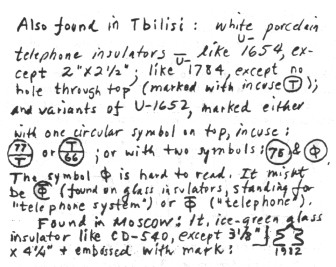 Also found in Tbilisi: white porcelain
telephone insulators U- like U-1654, ex-
cept 2"x2½"; like U-1784, except no
hole through top (marked with incuse Ⓣ);
and variants of U-1652, marked either
with one circular symbol on top, incuse:
77/T or T/66; or with two symbols: 75 & Ф
The symbol Ф is hard to read. It might
be (found on glass insulators, standing for
"telephone system") or Ф ("telephone").
Found in Moscow: lt. ice-green glass
insulator like CD-540, except 3⅛"
x 4¼" & embossed with mark:
1982